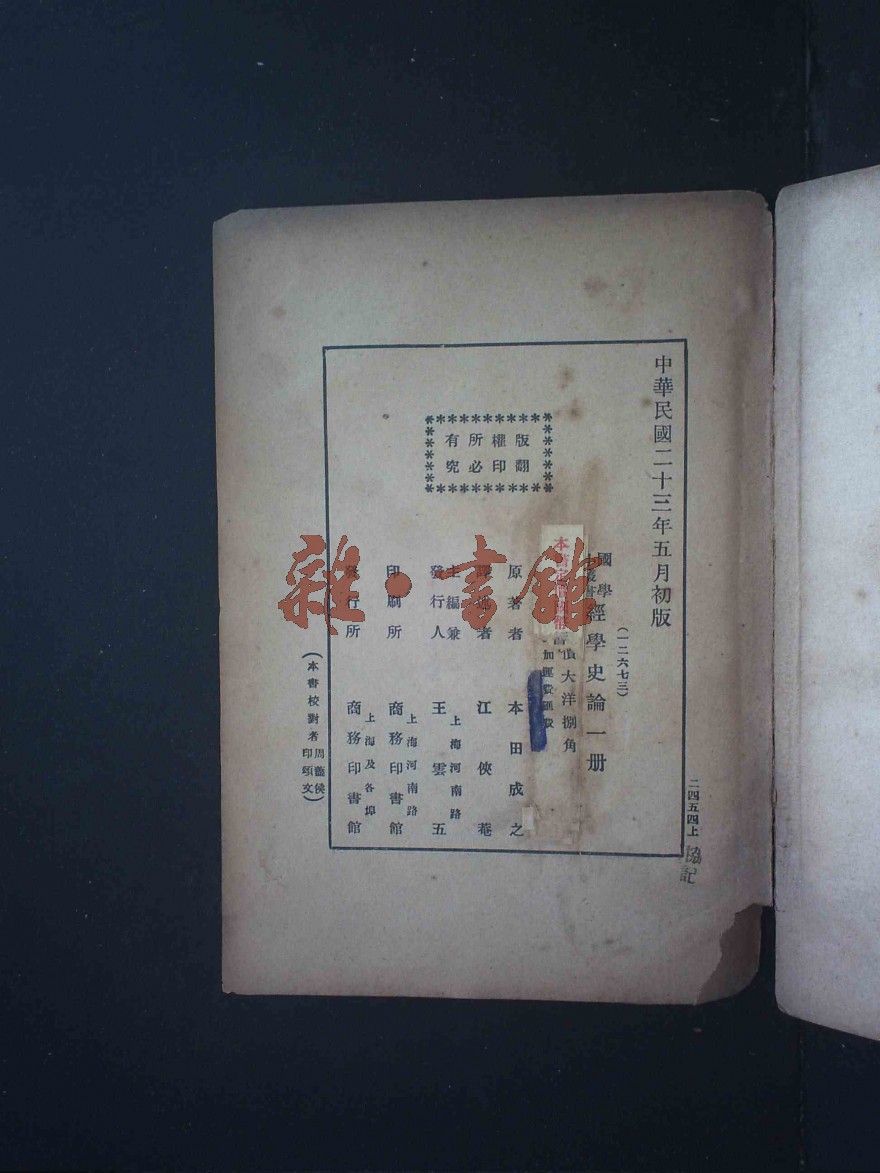 中華民國二十三年五月初版
(一二六七三)
國學
小叢書
經學史論一册
價大洋捌角
加運費匯費
本書
版權所有
翻印必究
原著者 本田成之
譯述者 江俠菴
主編兼
發行人 王雲五
上海河南路
印刷所 商務印書館
上海河南路
發行所 商務印書館
上海及各埠
(本書校對者周藎侯
印頌文)
二四五四上
協記
雜·書館